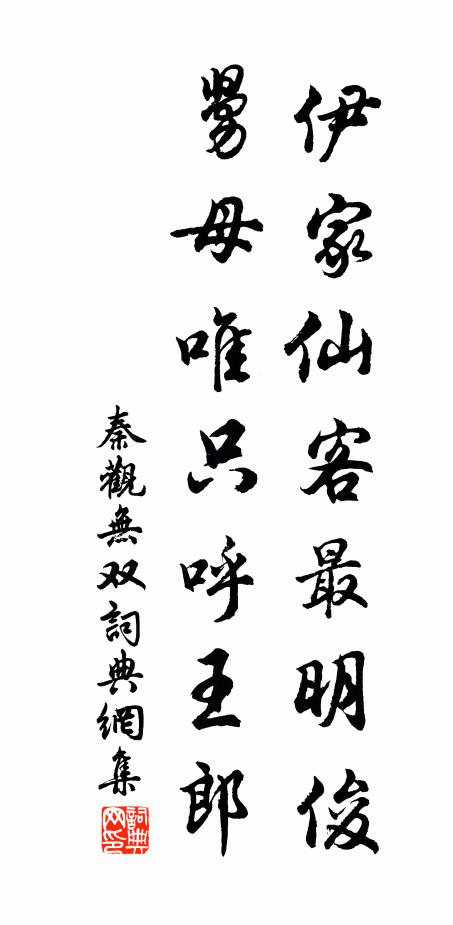 伊家仙客最明俊
舅母唯只呼王郎
秦觀無双詞典網集
詞典网印